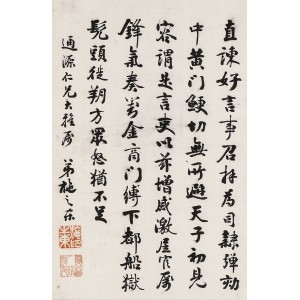 直諫好言事召拜為司隸彈劾
中黃門鯁切無所避天子初見
容謂是言吏以茲增感激居官厲
鋒氣奏對金商門縛下都船獄
髡頭徙朔方眾怒猶不足
通源仁兄大雅屬
弟施之東